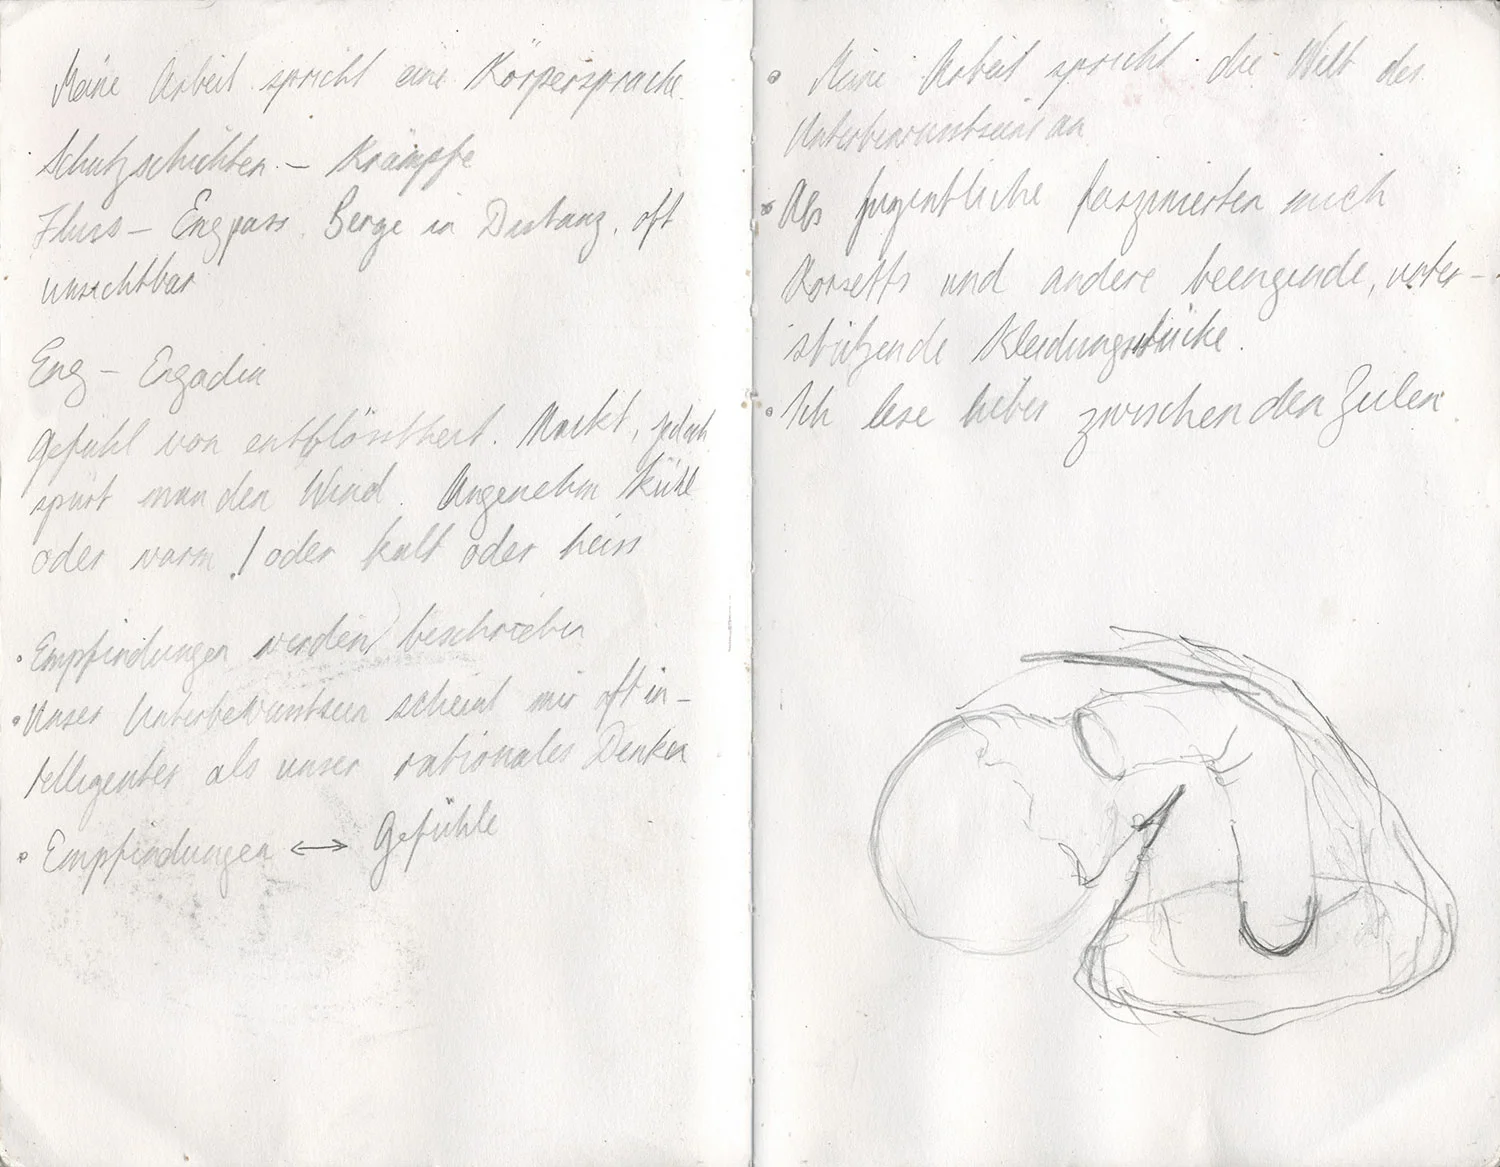 Meine Arbeit spricht eine Körpersprache.
Schutzschichten – Krämpfe
Fluss – Engpass. Berge in Distanz, oft
unsichtbar
Eng – Engadin
Gefühl von entblösstheit. Nackt, jedoch
spürt man den Wind. Angenehm kühl
oder warm! oder kalt oder heiss
• Empfindungen werden beschrieben
• Unser Unterbewuntsein scheint mir oft in-
telligenter als unser rationales Denken
• Empfindungen ↔ Gefühle
• Meine Arbeit spricht die Welt des
Unterbewuntseins an
• Als Jugentliche faszinierten mich
Korsetts und andere beengende, unter-
stützende Kleidungsstücke.
• Ich lese lieber zwischen den Zeilen.